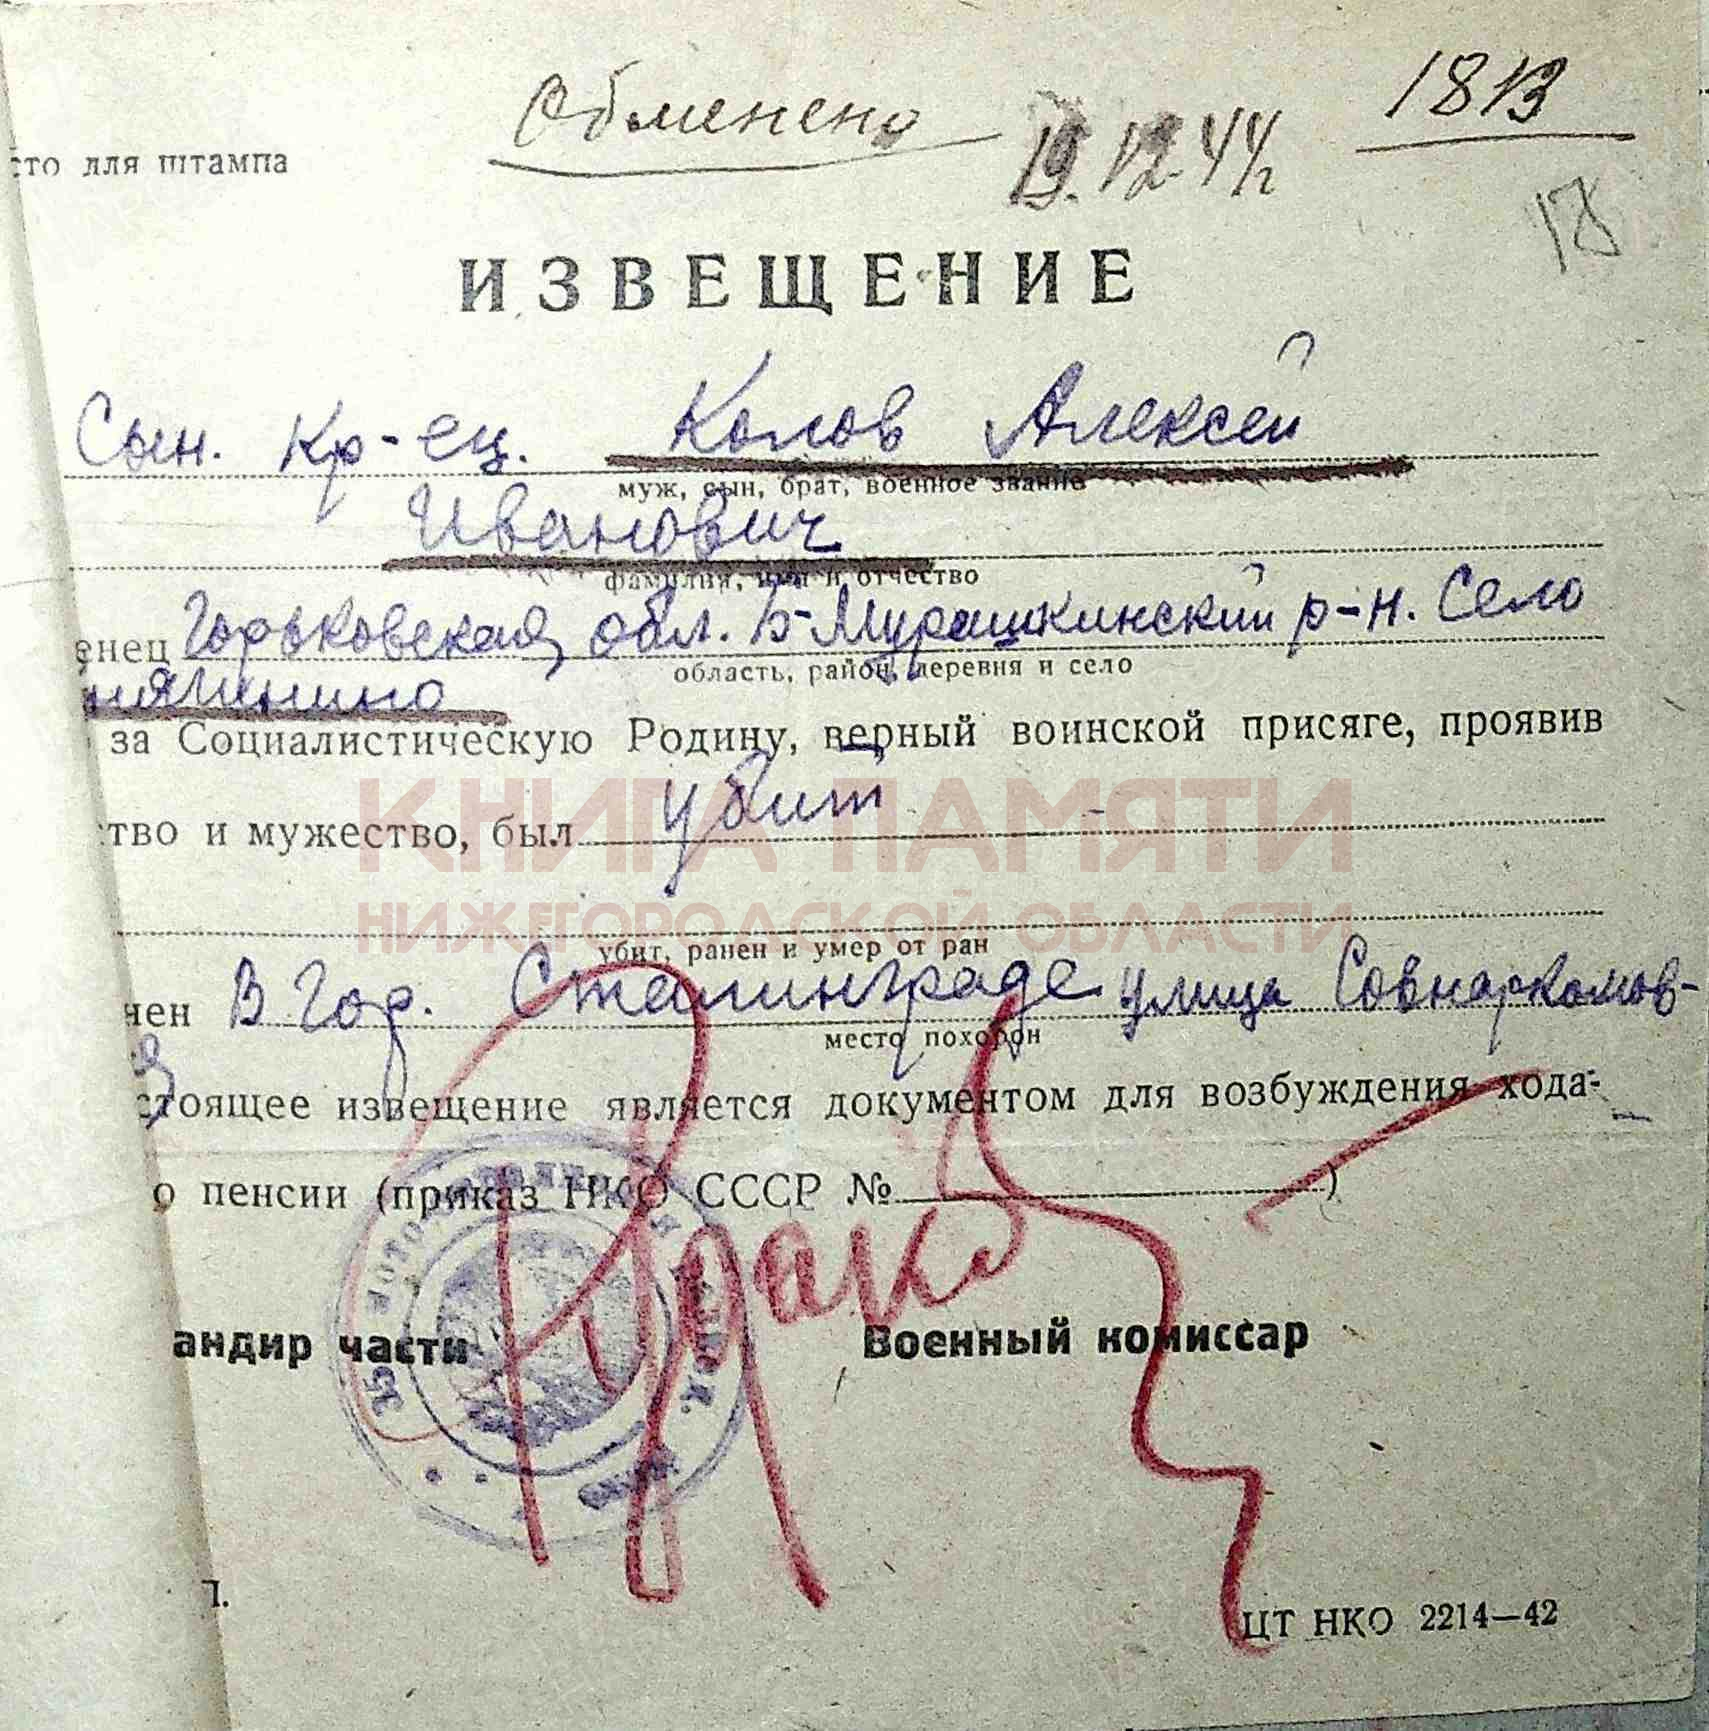 Обменено 19.12.44г 1813
сто для штампа
18
ИЗВЕЩЕНИЕ
Сын. Кр-ец. Колов Алексей
муж, сын, брат, военное звание
Иванович
фамилия, имя и отчество
енец Горьковская обл. Б-Мурашкинский р-н. Село
область, район, деревня и село
нягинино
за Социалистическую Родину, верный воинской присяге, проявив
тво и мужество, был убит
убит, ранен и умер от ран
нен В Гор. Сталинграде улица Совнаркомов-
место похорон
я
стоящее извещение является документом для возбуждения хода-
о пенсии (приказ НКО СССР № )
андир части Военный комиссар
П.
ЦТ НКО 2214—42
КНИГА ПАМЯТИ
НИЖЕГОРОДСКОЙ ОБЛАСТИ